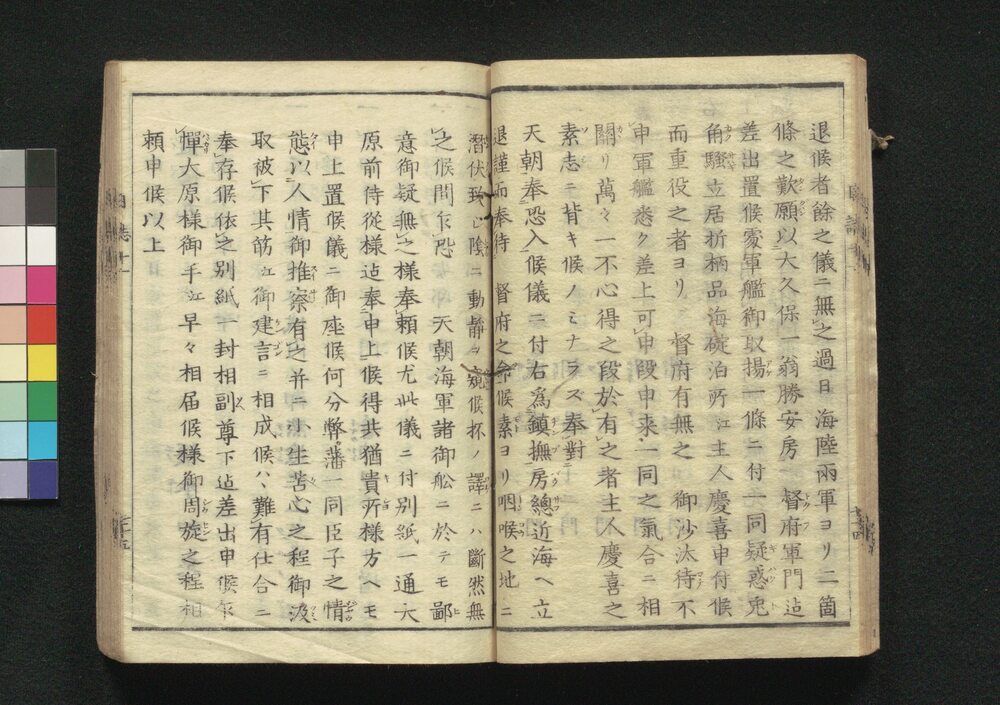 退候者餘之儀ニ無之過日海陸兩軍ヨリ二箇
條之歎願以大久保一翁勝安房督府軍門迠
差出置候處軍艦御取揚一條ニ付一同疑惑兎
角騒立居折柄品海碇泊所江主人慶喜申付候
而重役之者ヨリ督府有無之御沙汰待不
申軍艦悉ク差上可申段申来一同之氣合ニ相
關リ萬々一不心得之段於有之者主人慶喜之
素志ニ背キ候ノミナラス奉對
天朝奉恐入候儀ニ付右爲鎮撫房總近海ヘ立
退謹而奉待督府之命候素ヨリ咽喉之地ニ
潜伏致シ陰ニ動静ヲ窺候抔ノ譯ニハ斷然無
之候間乍恐天朝海軍諸御舩ニ於テモ鄙
意御疑無之様奉頼候尤此儀ニ付別紙一通大
原前侍從様迠奉申上候得共猶貴所様方ヘモ
申上置候儀ニ御座候何分弊藩一同臣子之情
態以人情御推察有之并ニ小生苦心之程御汲
取被下其筋江御建言ニ相成候ハヽ難有仕合ニ
奉存候依之別紙一封相副尊下迠差出申候乍
憚大原様御手江早々相届候様御周旋之程相
頼申候以上
日誌十一